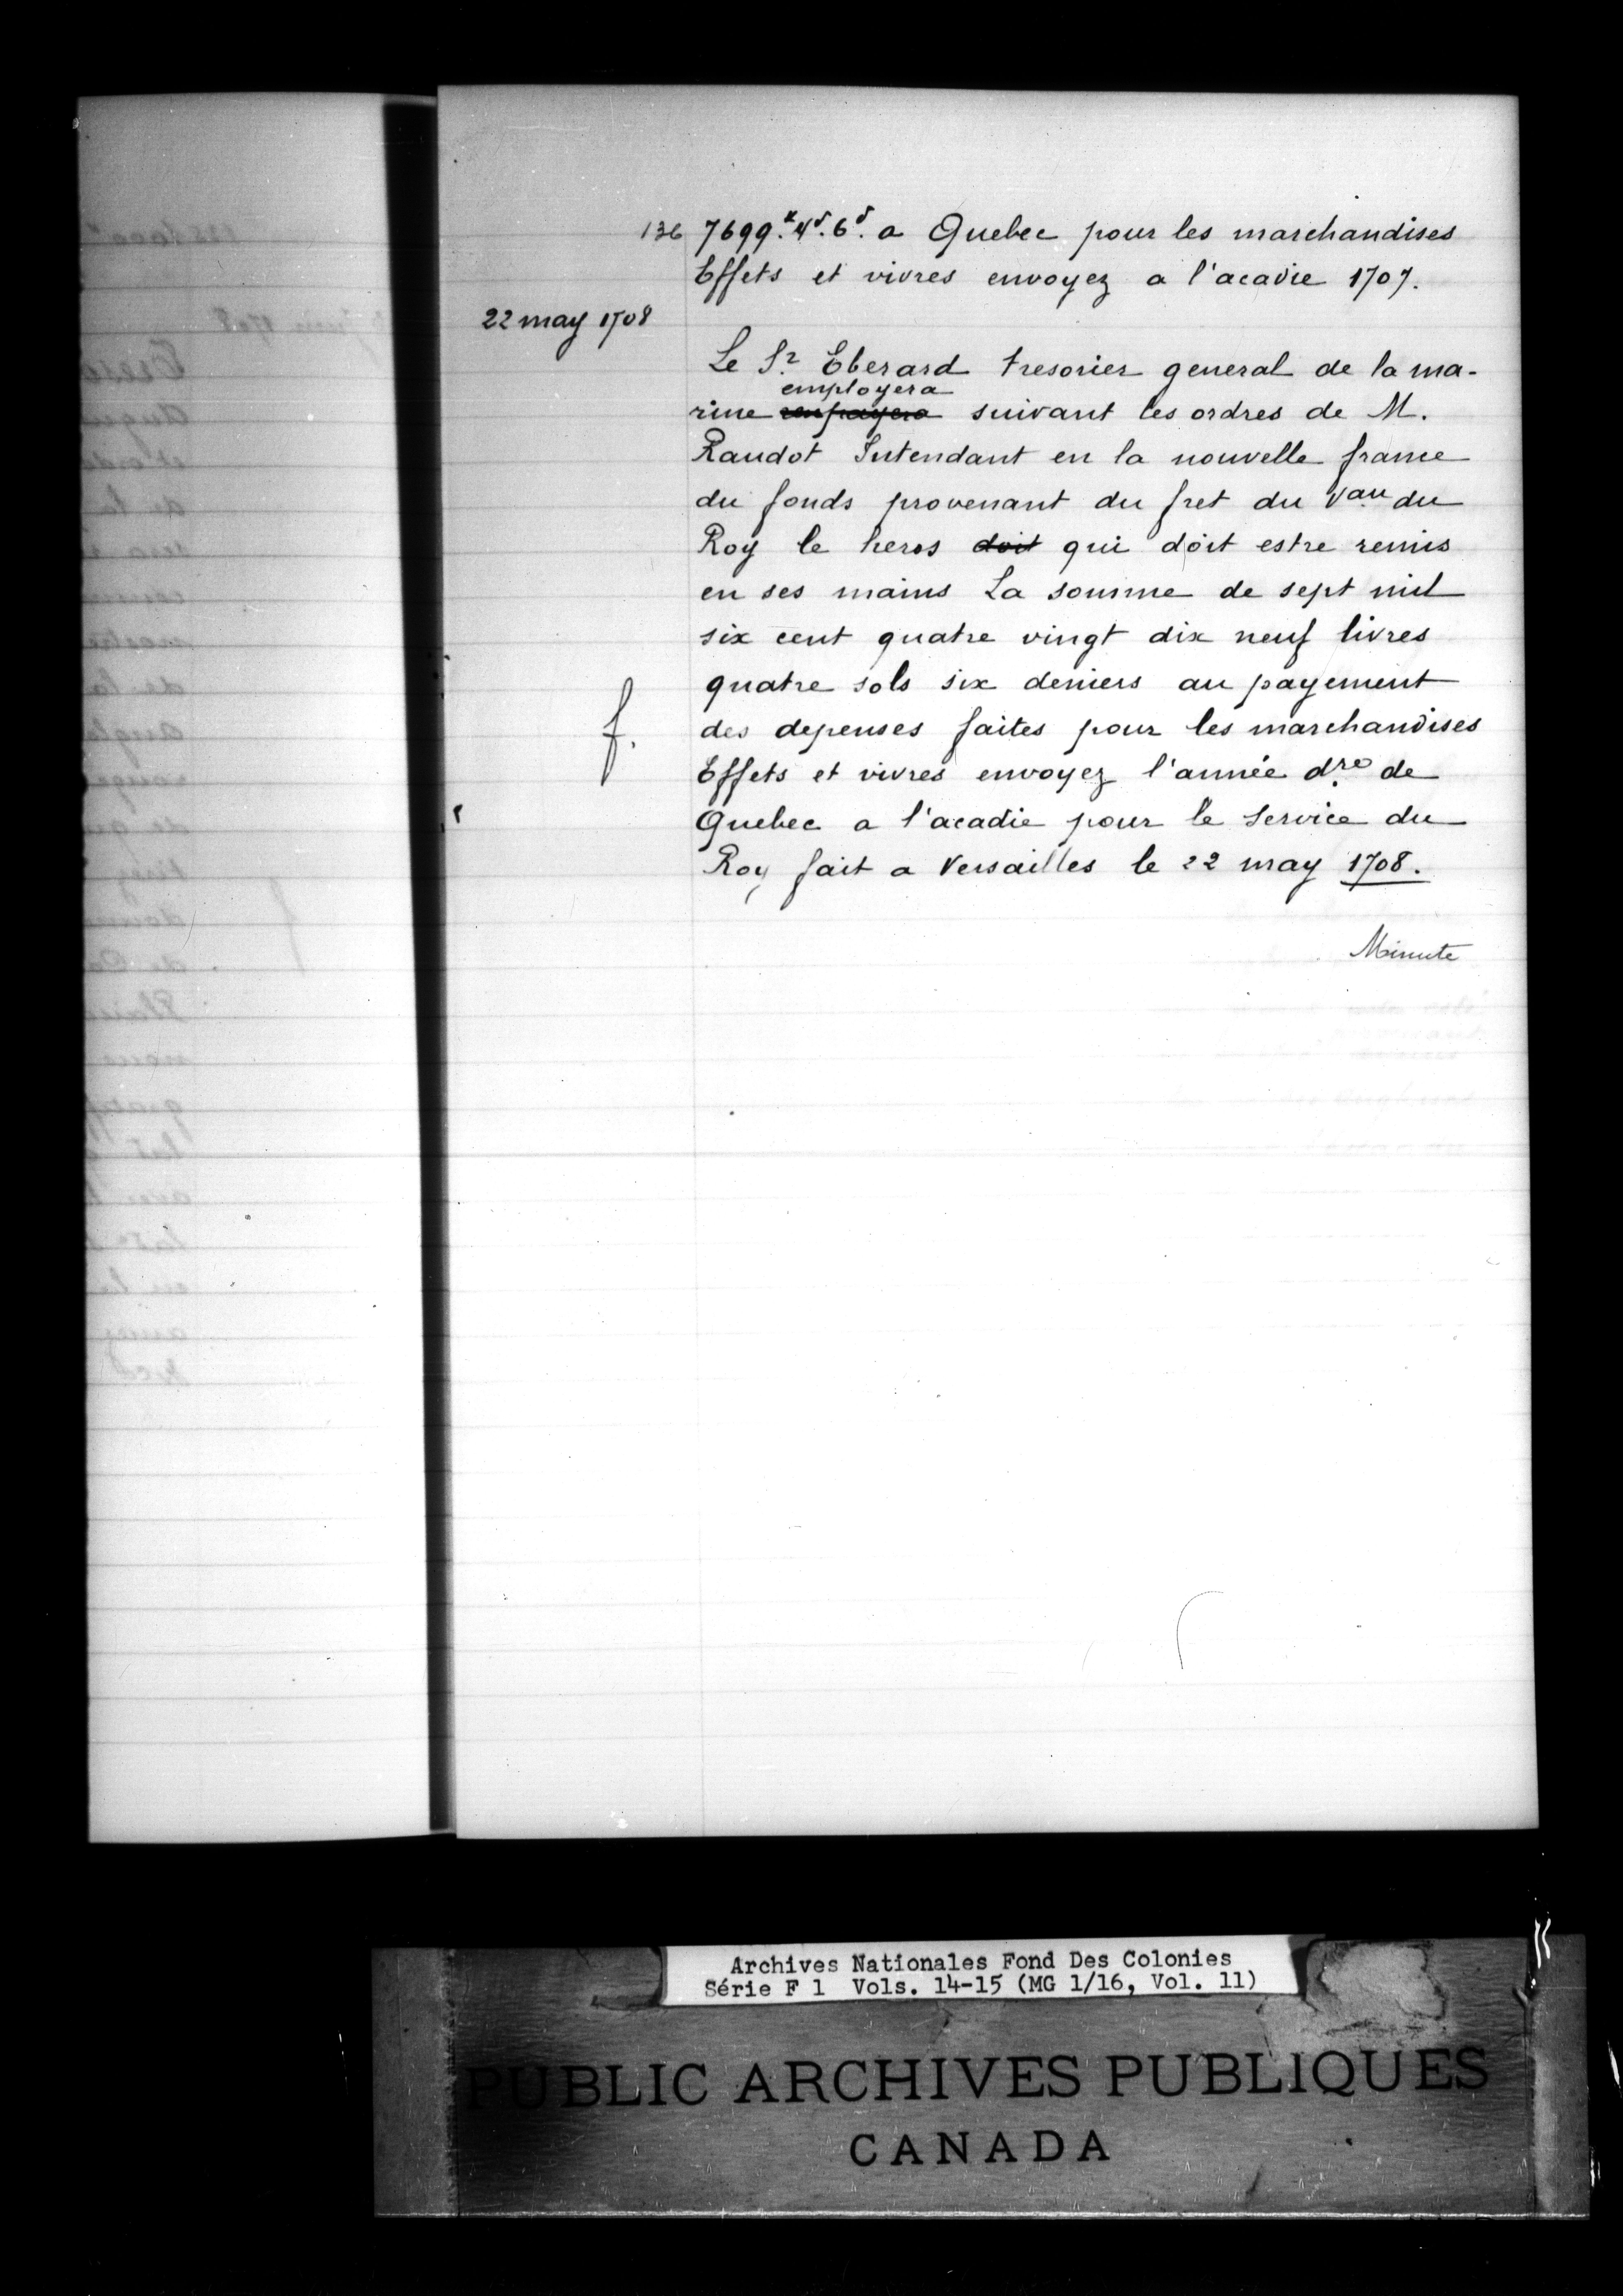 136 7699.ᵗ 4ˢ. 6ᵈ. a Quebec pour les marchandises
Effets et vivres envoyez a l'acadie 1707.
22 may 1708
Le Sʳ. Eberard tresorier general de la ma-
employera
rine suivant les ordres de M.
Raudot Intendant en la nouvelle france
du fonds provenant du fret du Vᵃᵘ. du
Roy le heros doit qui doit estre remis
en ses mains La somme de sept mil
six cent quatre vingt dix neuf livres
quatre sols six deniers au payement
f. des depenses faites pour les marchandises
Effets et vivres envoyez l'année dʳᵉ. de
Quebec a l'acadie pour le service du
Roy fait a Versailles le 22 may 1708.
Minute
Archives Nationales Fond Des Colonies
Série F 1 Vols. 14-15 (MG 1/16, Vol. 11)
PUBLIC ARCHIVES PUBLIQUES
CANADA